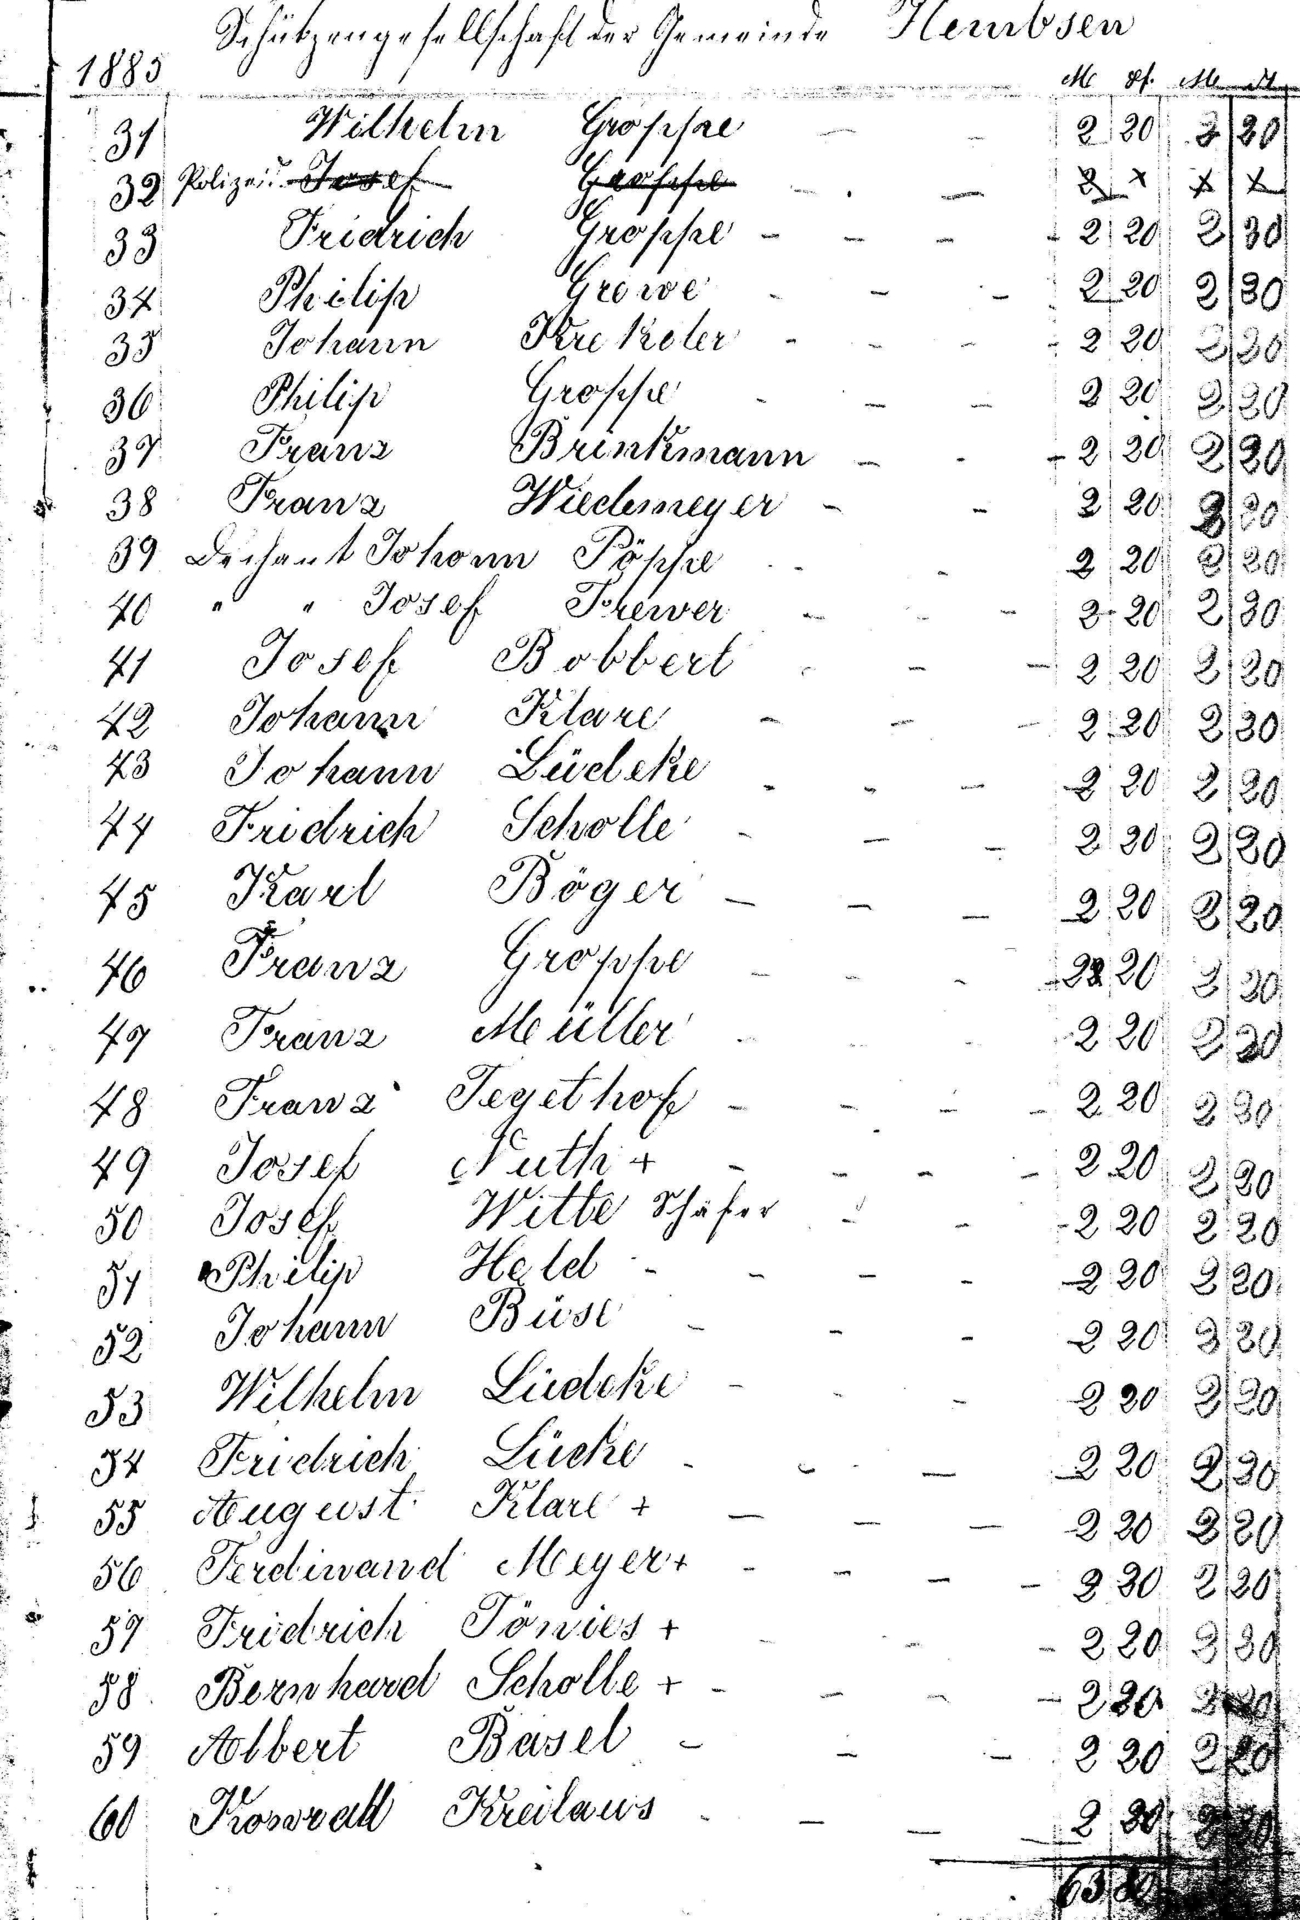 Schützengesellschaft der Gemeinde Hembsen
1885 M Pf. M Pf
31 Wilhelm Groppe — — 2 20 2 20
32 Polizeid. Josef Groppe - . — 2 x x x
33 Fridrich Groppe - - - - 2 20 2 20
34 Philip Grewe - - - 2 20 2 20
35 Johann Krekeler - - - - 2 20 2 20
36 Philip Groppe - - - 2 20 2 20
37 Franz Brinkmann - - - 2 20 2 20
38 Franz Wiedemeyer - - 2 20 2 20
39 Dechant Johann Pöppe - - 2 20 2 20
40 " " Josef Frewer - - - 2 20 2 20
41 Josef Bobbert - - - 2 20 2 20
42 Johann Klare - - - 2 20 2 20
43 Johann Lüdeke - - - 2 20 2 20
44 Fridrich Scholle - - - 2 20 2 20
45 Karl Böger - - - 2 20 2 20
46 Franz Groppe - - - 2 20 2 20
47 Franz Müller - - - 2 20 2 20
48 Franz Tegethof - - - - 2 20 2 20
49 Josef Nuth + - - - - 2 20 2 20
50 Josef Witte Schäfer - - - 2 20 2 20
51 Philip Held - - - - 2 20 2 20
52 Johann Büse - - - 2 20 2 20
53 Wilhelm Lüdeke - - - 2 20 2 20
54 Fridrich Lücke - - - 2 20 2 20
55 August Klare + - - - 2 20 2 20
56 Ferdinand Meyer + - - - - 2 20 2 20
57 Fridrich Tönies + - - - 2 20 2 20
58 Bernhard Scholle + - - - - 2 20 2 20
59 Albert Basel - - - 2 20 2 20
60 Konrad Kreilaus - - - 2 20 2 20
63 80